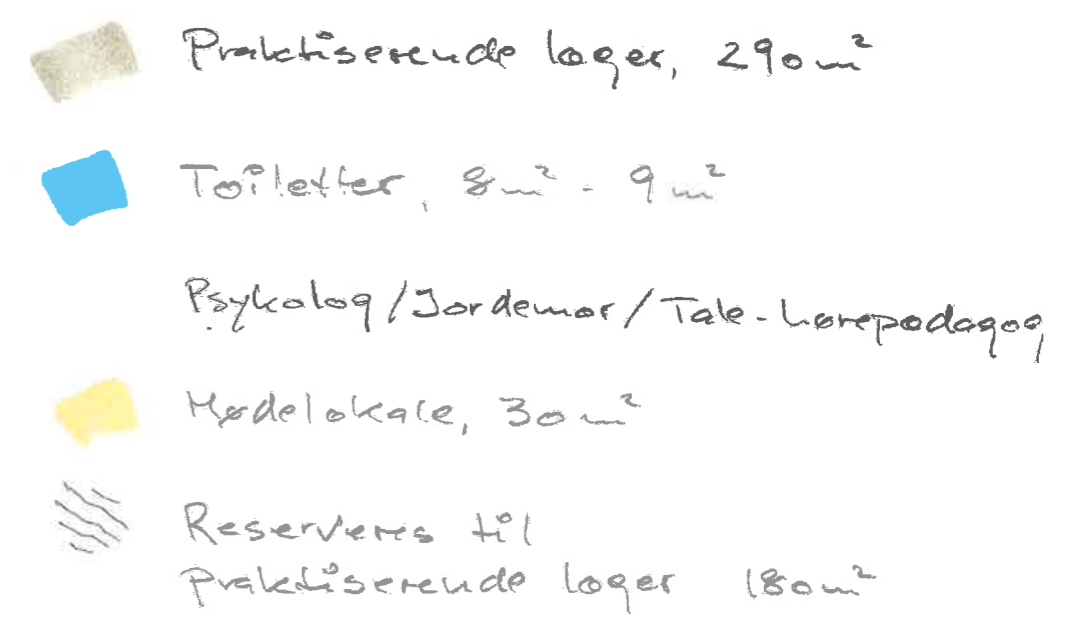 Praktiserende læger, 290 m²
Toiletter, 8 m² - 9 m²
Psykolog/Jordemor/Tale-hørepædagog
Mødelokale, 30 m²
Reserveres til
praktiserende læger 180 m²